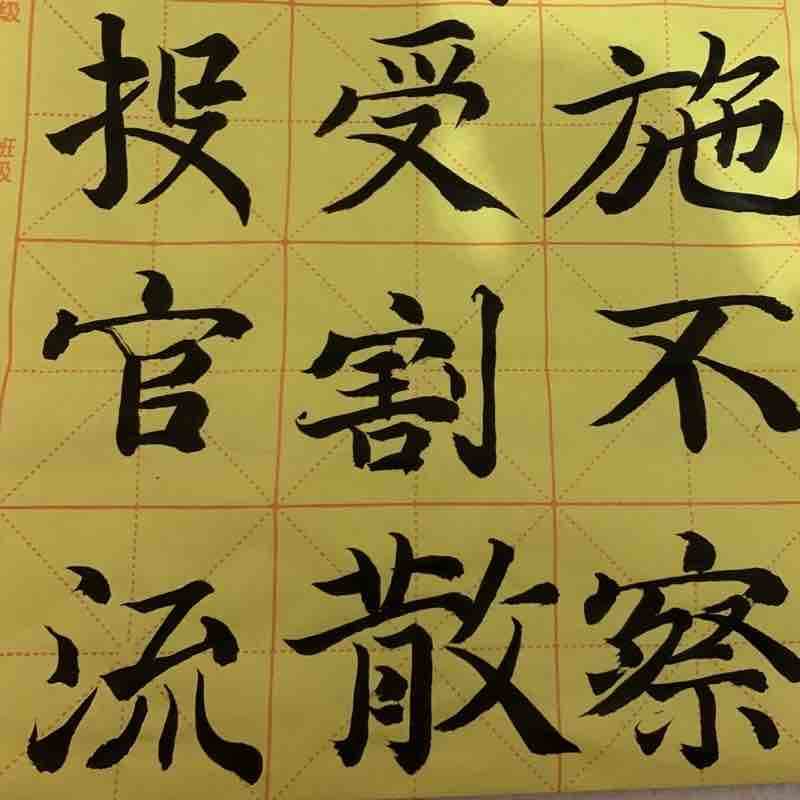 投受施
官割不
流散察
班级
级